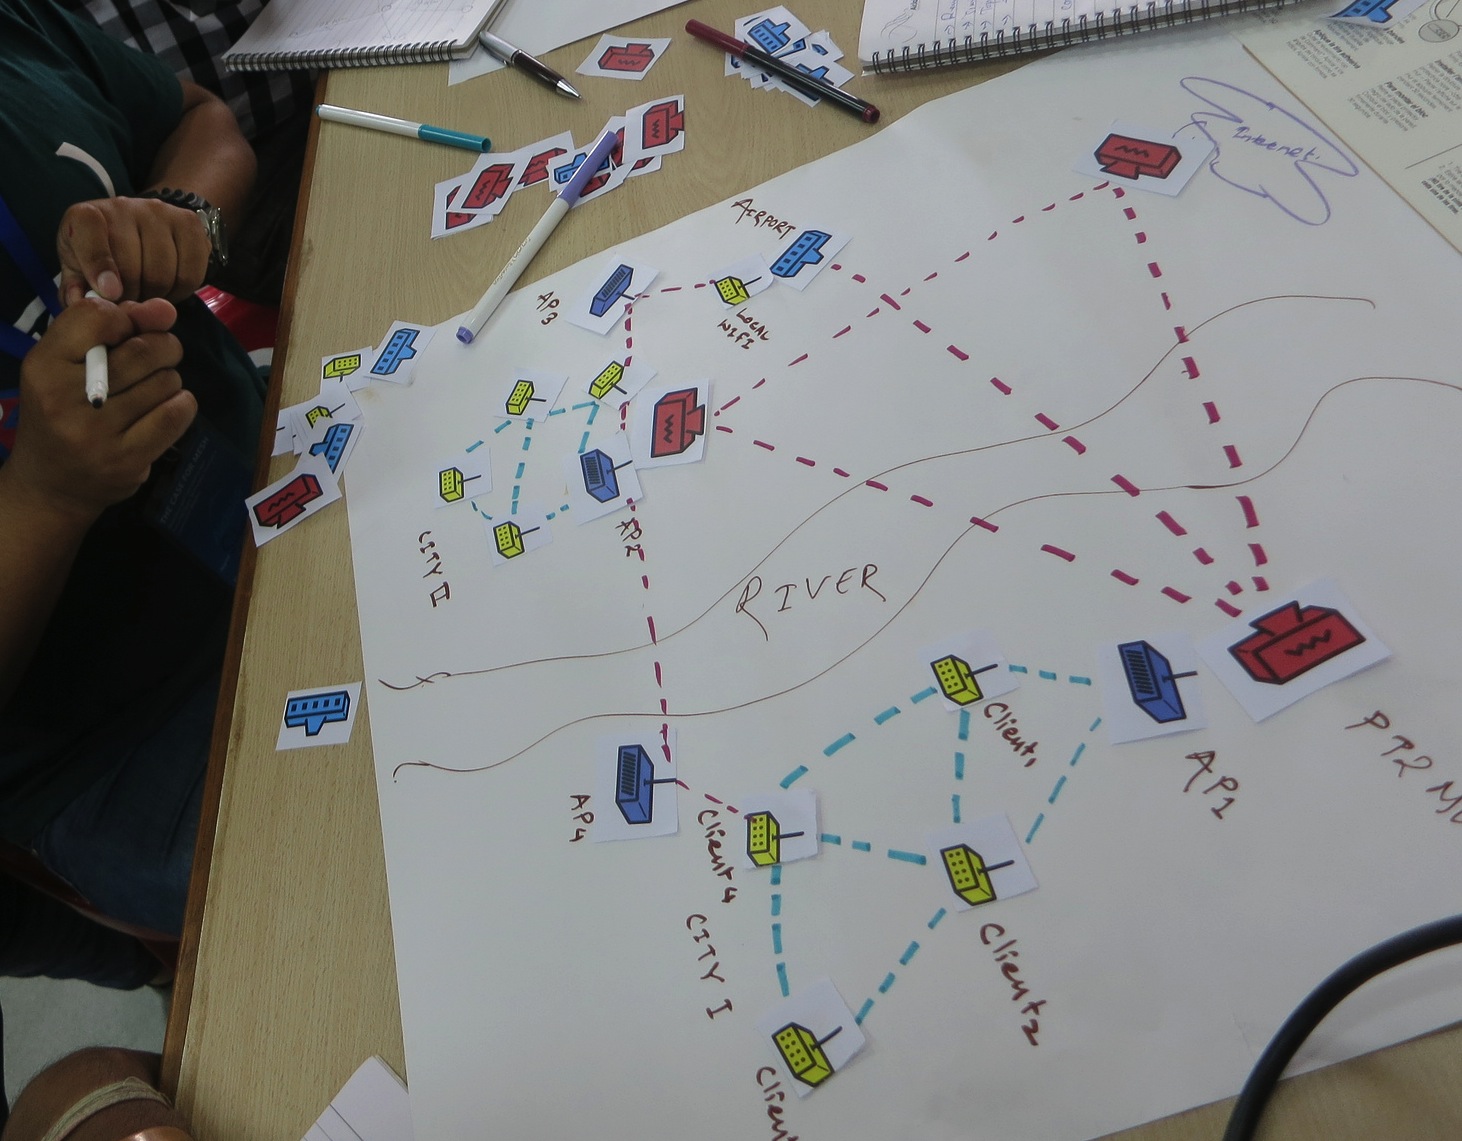 Internet.
AIRPORT
AP3
LOCAL
WIFI
AP2
CITY II
RIVER
Client1
AP1
PT2 M
AP4
Client4
CITY I
Client2
Client